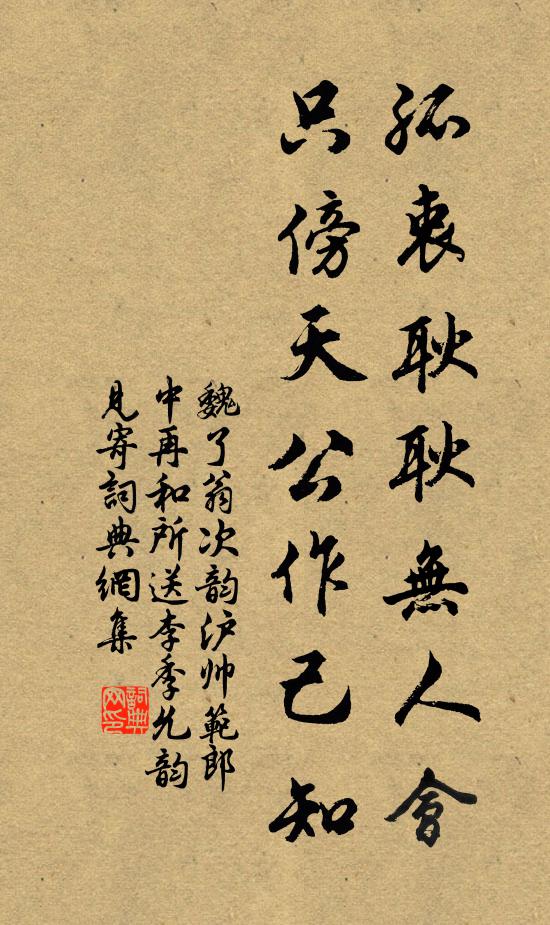 孤衷耿耿無人會
只傍天公作己知
魏了翁次韵泸帅範郎
中再和所送李季允韵
見寄詞典網集
詞典网印